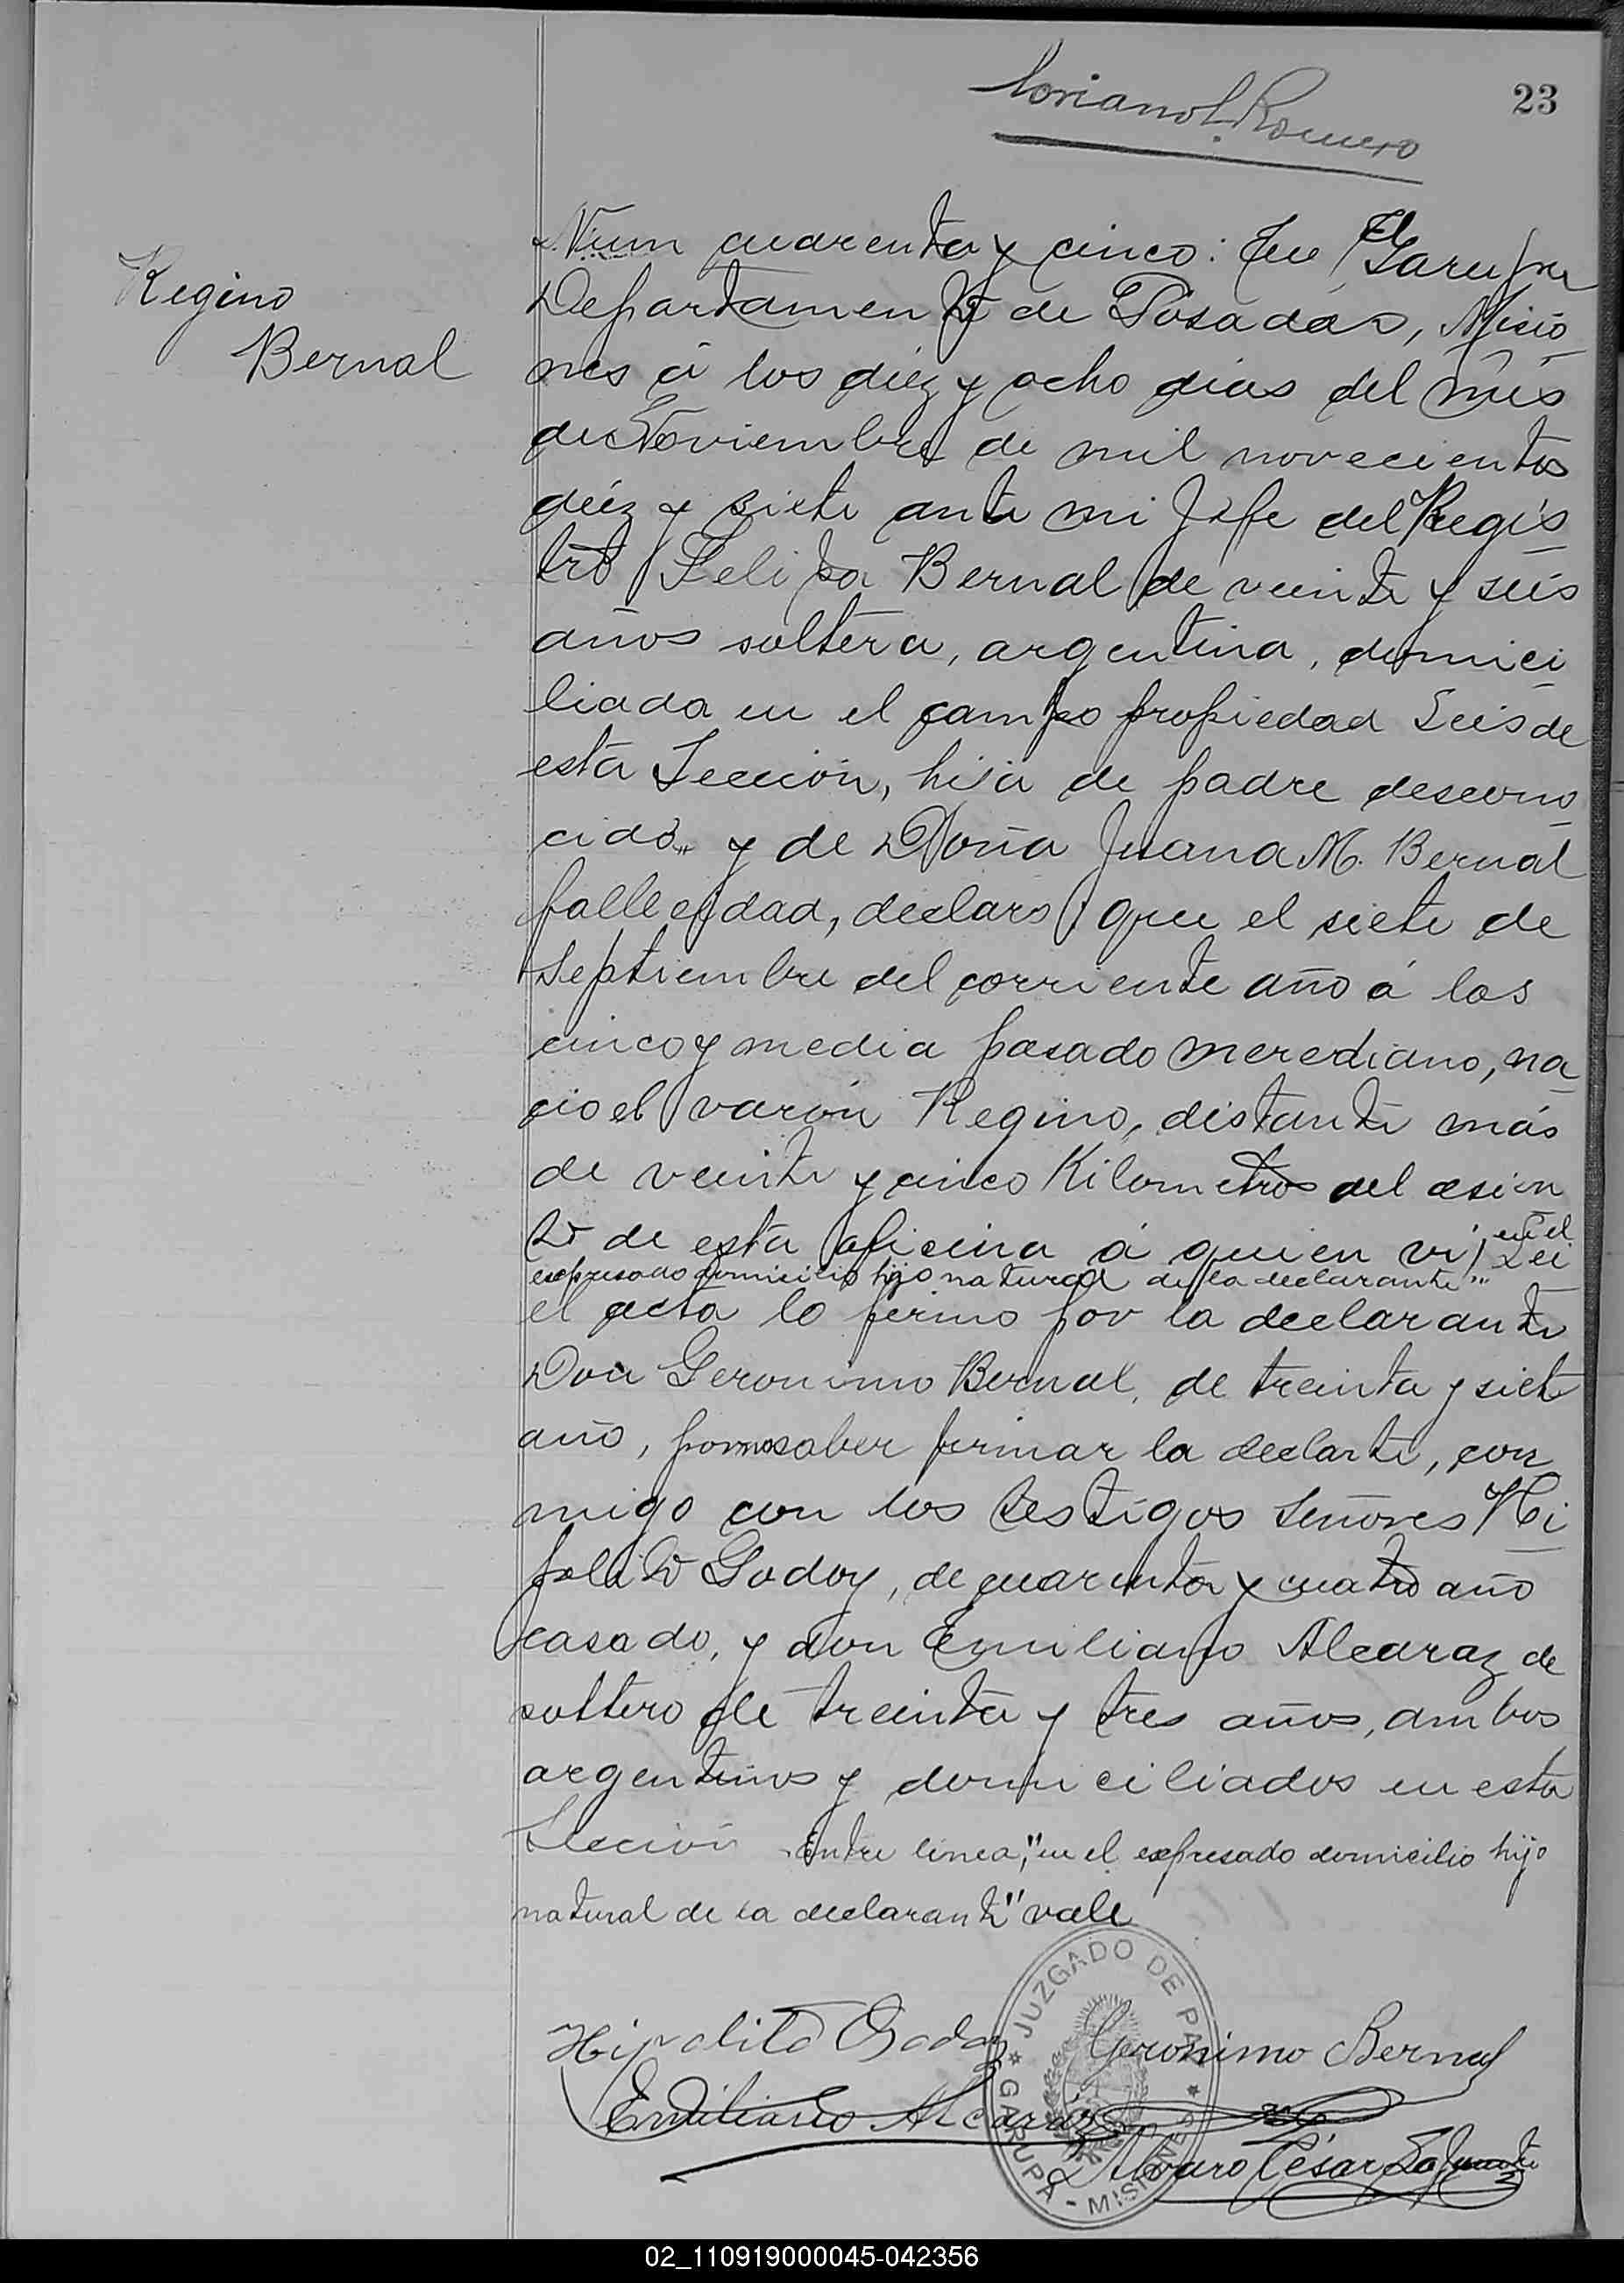 Soriano L. Romero
23
Regino
Bernal
Num cuarenta y cinco: En El Garupa
Departamento de Posadas, Misio
nes á los diéz y ocho dias del més
de Noviembre de mil novecientos
diéz y siete ante mi Jefe del Regis
tro Felipa Bernal de veinte y seis
años soltera, argentina, domici
liada en el campo propiedad Seis de
esta Sección, hija de padre descono
cido„ y de Doña Juana M. Bernal
fallecidad, declaro: que el siete de
Septiembre del corriente año á las
cinco y media pasado merediano, na
cio el varón Regino, distante más
de veinte y cinco Kilometros del asien
to de esta oficina á quien vi, en el Lei
expresado domicilio hijo natural de la declarante"
el acta lo firmo por la declarante
Don Geronimo Bernal, de treinta y siete
año, por no saber firmar la declarte, con
migo con los testigos Señores Hi
polito Godoy, de cuarenta y cuatro año
casado, y don Emiliano Alcaraz de
soltero de treinta y tres años, ambos
argentinos y domiciliados en esta
Sección Entre linea, "en el expresado domicilio hijo
natural de la declarante" vale
JUZGADO DE PAZ * GARUPA - MISIONES *
Hipolito Godoy Geronimo Bernal
Emiliano Alcaráz
Alvaro César Lafuente
02_110919000045-042356